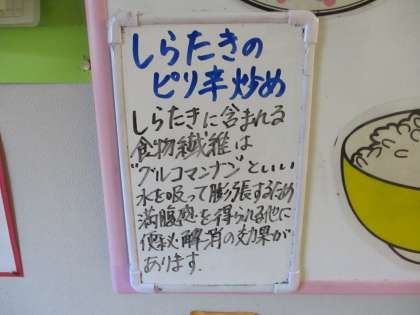 しらたきの
ピリ辛炒め
しらたきに含まれる
食物繊維は
"グルコマンナン"といい
水を吸って膨張するため
満腹感を得られる他に
便秘解消の効果が
あります.